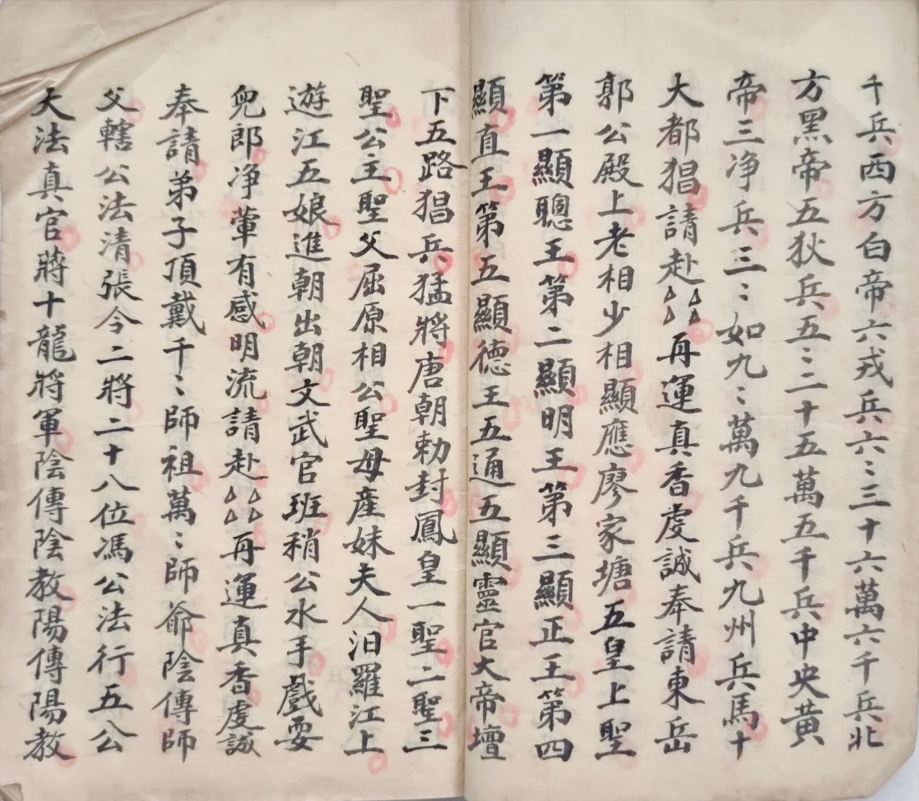 千兵西方白帝六戎兵六〻三十六萬六千兵北
方黑帝五狄兵五〻二十五萬五千兵中央黄
帝三净兵三〻如九〻萬九千兵九州兵馬十
大都猖請赴再運真香虔誠奉請東岳
郭公殿上老相少相顯應廖家塘五皇上聖
第一顯聰王第二顯明王第三顯正王第四
顯直王第五顯德王五通五顯靈官大帝壇
下五路猖兵猛將唐朝勅封鳳皇一聖二聖三
聖公主聖父屈原相公聖母産妹夫人汨羅江上
遊江五娘進朝出朝文武官班稍公水手戲耍
兒郎净葷有感明流請赴再運真香虔誠
奉請弟子頂戴千〻師祖萬〻師爺陰傳師
父轄公法清張今二將二十八位馮公法行五公
大法真官將十龍將軍陰傳陰教陽傳陽教